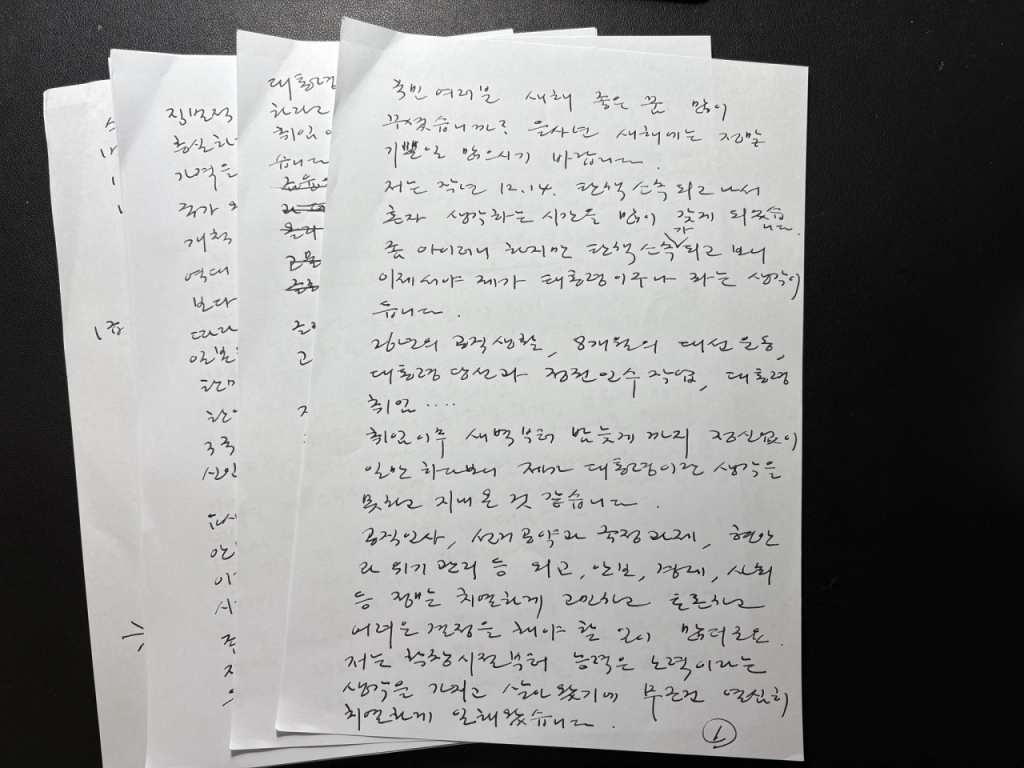 국민 여러분 새해 좋은 꿈 많이
꾸셨습니까? 을사년 새해에는 정말
기쁜일 많으시기 바랍니다.
저는 작년 12.14. 탄핵 소추 되고 나서
혼자 생각하는 시간을 많이 갖게 되었습니다.
좀 아이러니 하지만 탄핵 소추가 되고 보니
이제서야 제가 대통령이구나 하는 생각이
듭니다.
26년의 공직생활, 8개월의 대선 운동,
대통령 당선과 정권 인수 작업, 대통령
취임 ....
취임이후 새벽부터 밤늦게 까지 정신없이
일만 하다보니 제가 대통령이란 생각을
못하고 지내 온 것 같습니다.
공직인사, 선거공약과 국정과제, 현안
과 위기 관리 등 외교, 안보, 경제, 사회
등 정말 치열하게 고민하고 토론하고
어려운 결정을 해야 할 일이 많더군요.
저는 학창시절부터 능력은 노력이라는
생각을 가지고 살아 왔기에 무조건 열심히
치열하게 일해왔습니다.
1
대통령
하라고
취임
습니다
직무
충실하
가격은
국가
개척
역대
보다
따라
일본
3국